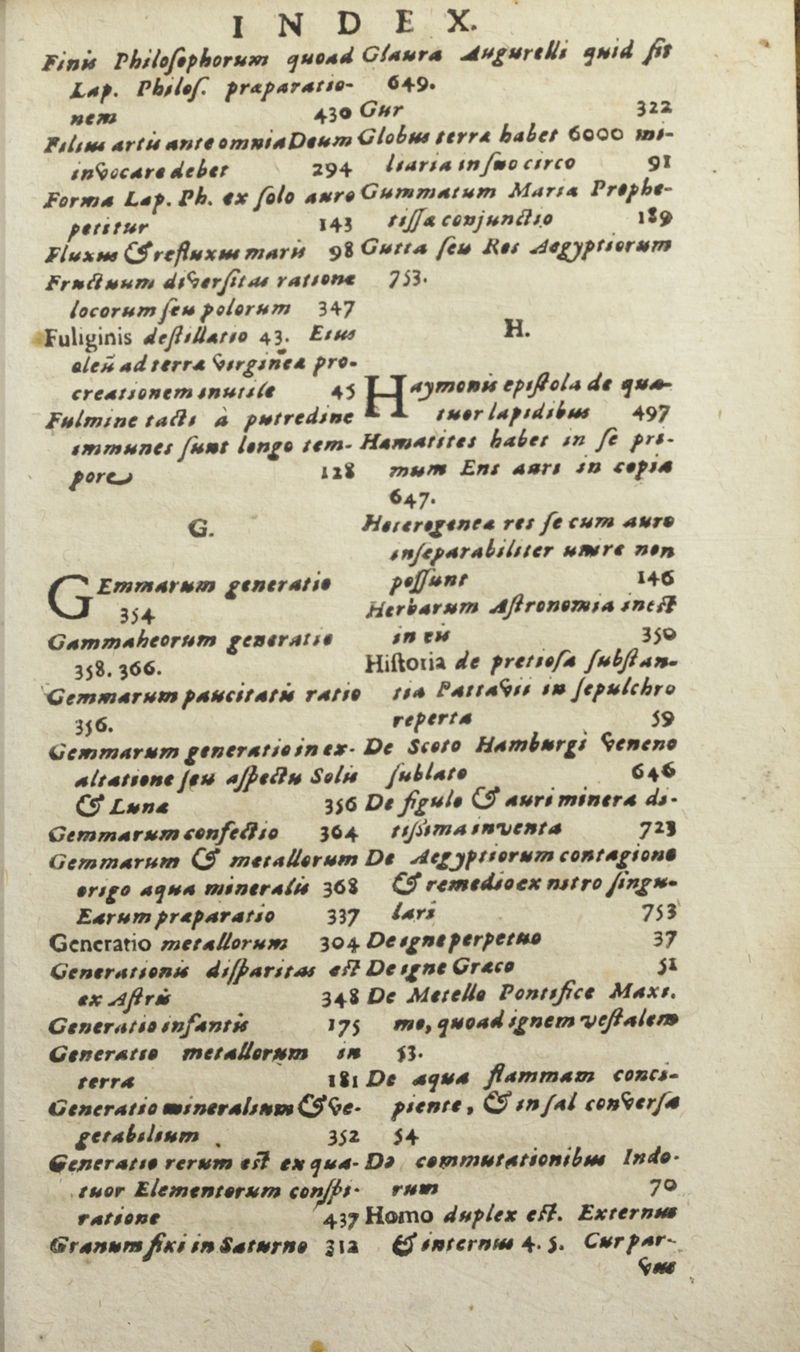 INDEX.
Finis Philosophorum quoad
Lap. Philos. præparatio-
nem 430
Filius artis ante omnia Deum
invocare debet 294
Forma Lap. Ph. ex solo auro
petitur 143
Fluxus & refluxus maris 98
Fructuum diversitas ratione
locorum seu polorum 347
Fuliginis destillatio 43. Eius
oleū ad terræ virgineæ pro-
creationem inutile 45
Fulmine tacti à putredine
immunes sunt longo tem-
pore 128
G.
GEmmarum generatio
354
Gammaheorum generatio
358. 366.
Gemmarum paucitatis ratio
356.
Gemmarum generatio in ex-
altatione seu aspectu Solis
& Luna 356
Gemmarum confectio 364
Gemmarum & metallorum
origo aqua mineralis 368
Earum præparatio 337
Generatio metallorum 304
Generationis disparitas est
ex Astris 348
Generatio infantis 175
Generatio metallorum in
terra 181
Generatio mineralium & ve-
getabilium 352
Generatio rerum est ex qua-
tuor Elementorum conspi-
ratione 437
Granum fixi in Saturno 312
Glaura Augurelli quid sit
649.
Gur 322
Globus terræ habet 6000 mi-
liaria in suo circo 91
Gummatum Maria Prophe-
tissæ conjunctio 189
Gutta seu Ros Aegyptiorum
753.
H.
Haymonis epistola de qua-
tuor lapidibus 497
Hæmatites habet in se pri-
mum Ens auri in copia
647.
Heterogenea res se cum auro
inseparabiliter unire non
possunt 146
Herbarum Astronomia inest
in eis 350
Historia de pretiosa substan-
tia Pattavii in sepulchro
reperta 59
De Scoto Hamburgi veneno
sublato 646
De figulo & auri minera di-
tissima inventa 723
De Aegyptiorum contagione
& remedio ex nitro singu-
lari 753
De igne perpetuo 37
De igne Græco 51
De Metello Pontifice Maxi.
mo, quoad ignem vestalem
53.
De aqua flammam conci-
piente, & in sal conversa
54
De commutationibus Indo-
rum 70
Homo duplex est. Externus
& internus 4. 5. Cur par-
vus